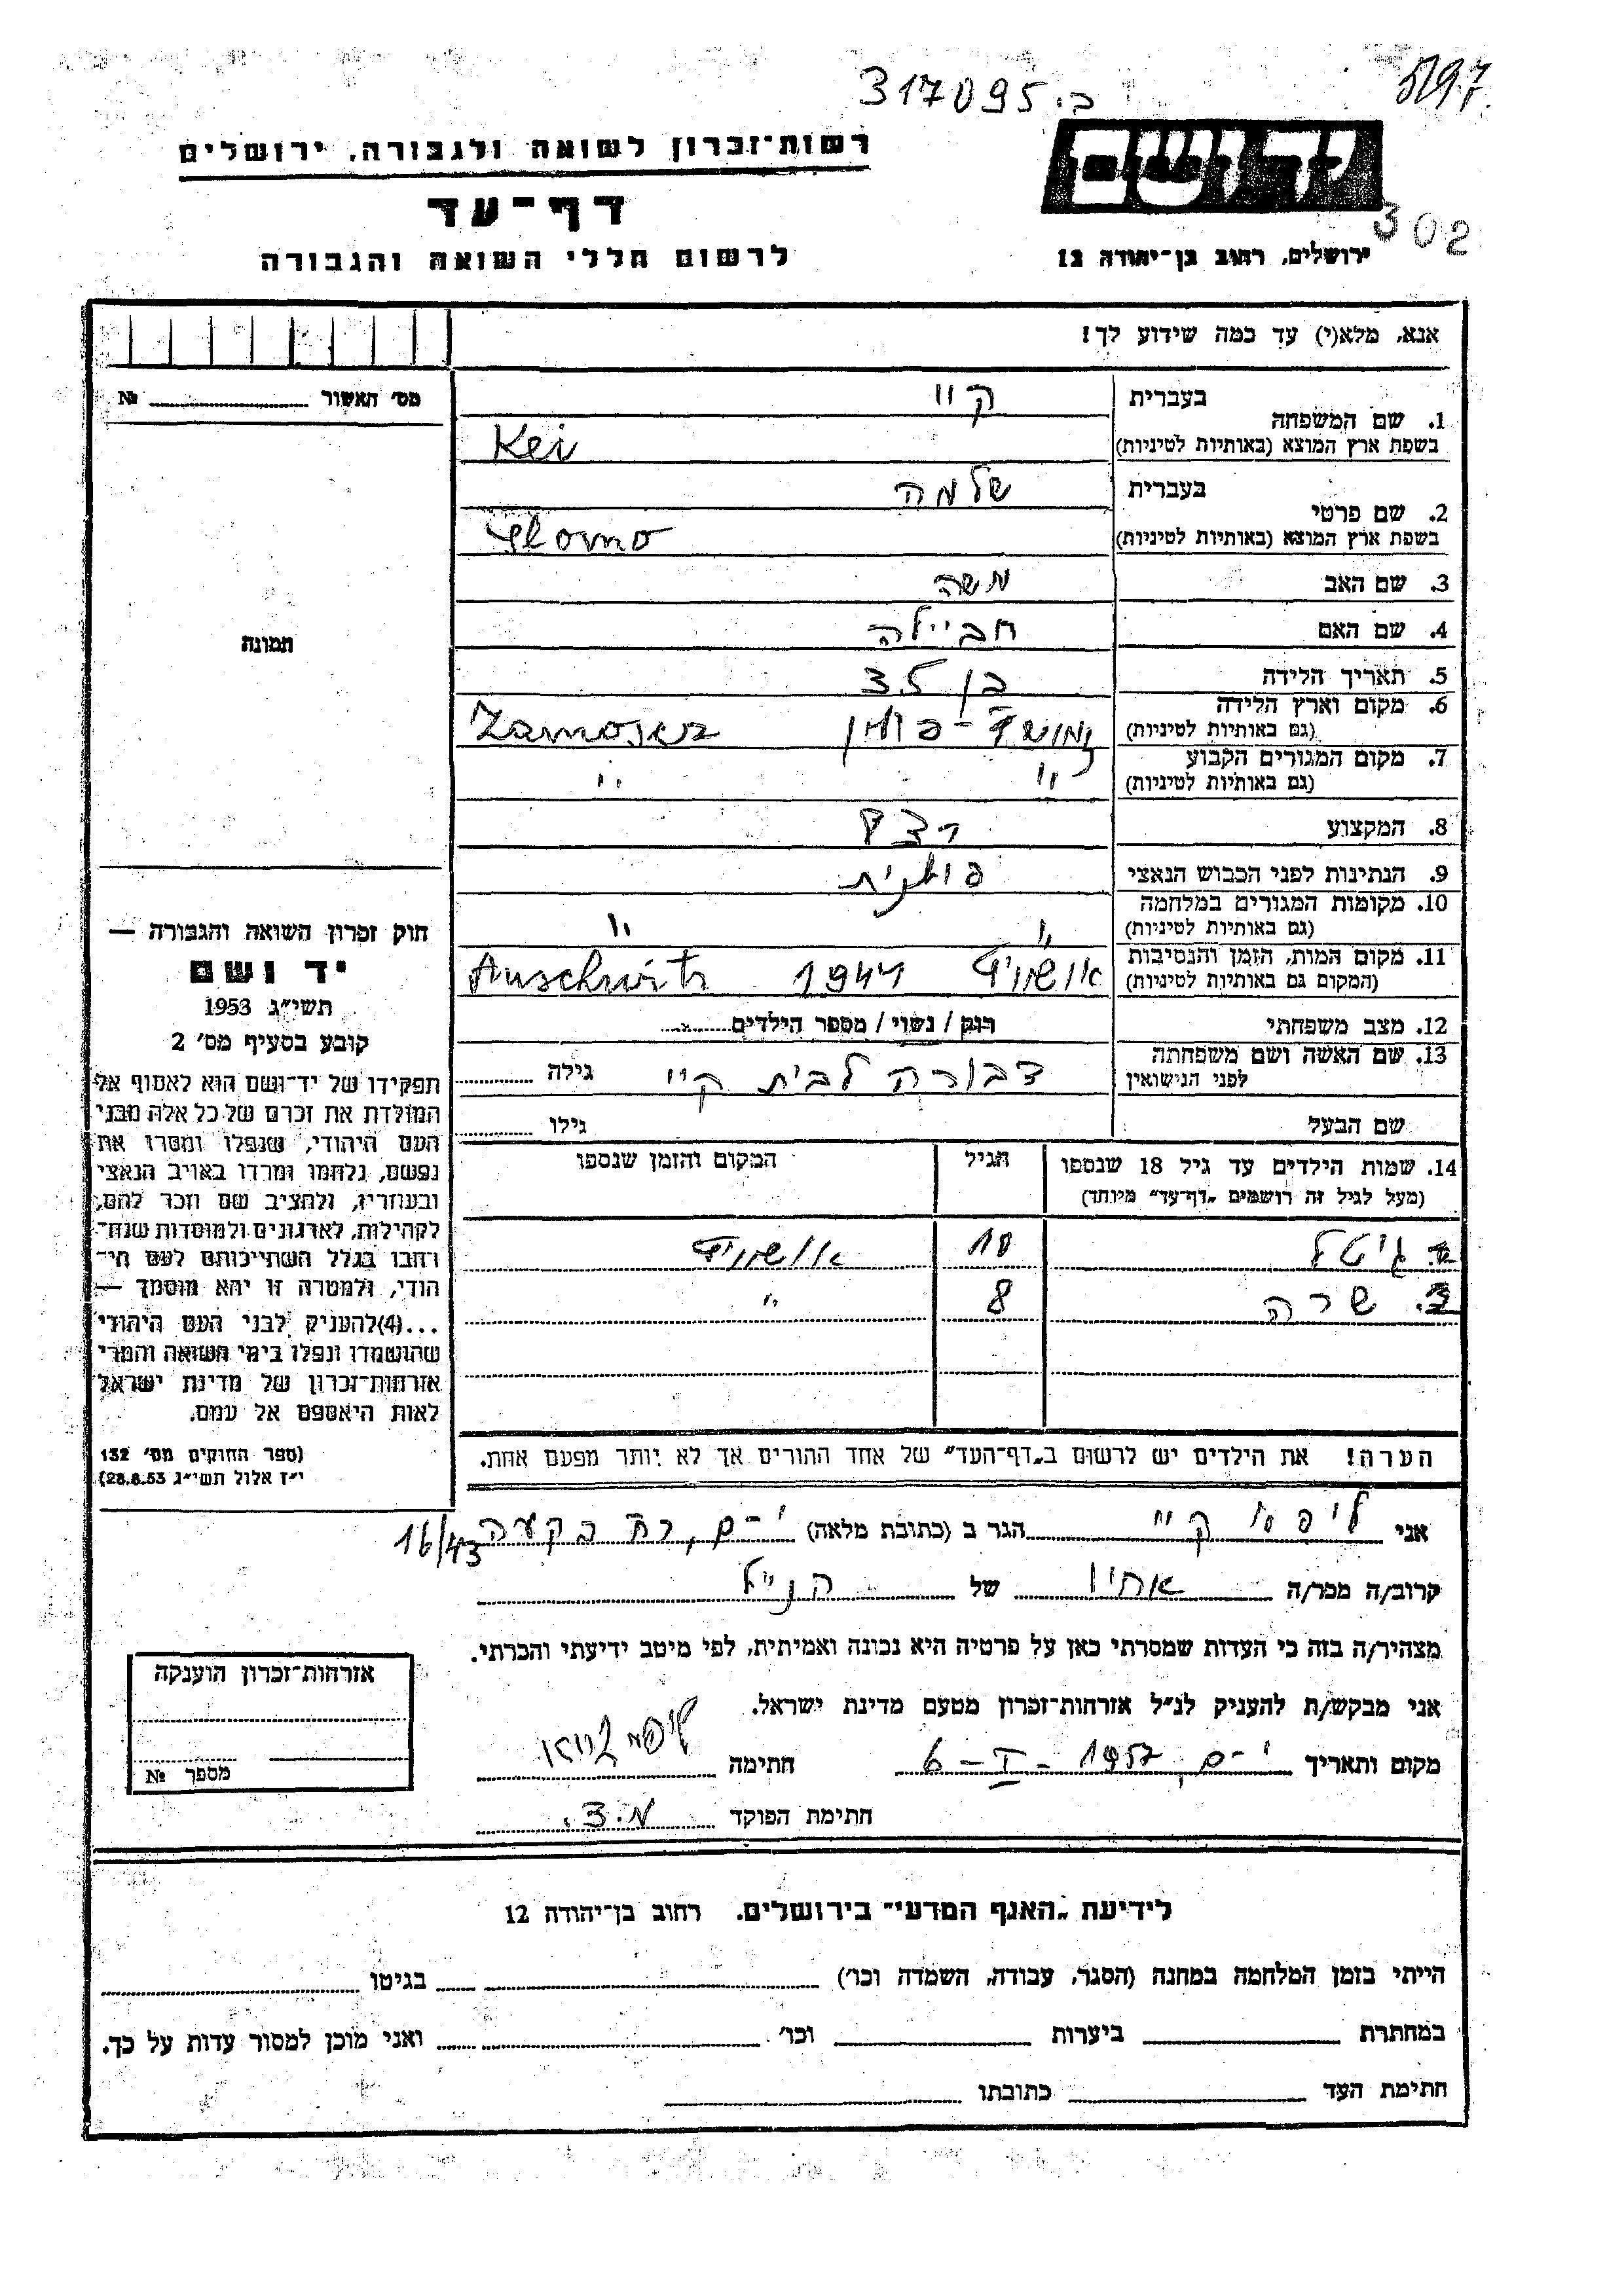 317095 .כ
5197
רשות־זכרון לשואה ולגבורה, ירושלים
יד ושם
דף־עד
302
לרשום חללי השואה והגבורה
ירושלים, רחוב בן־יהודה 12
אנא, מלא(י) עד כמה שידוע לך!
מס׳ האשור № 
1. שם המשפחה בעברית קיי
בשפת ארץ המוצא (באותיות לטיניות) Kei
2. שם פרטי בעברית שלמה
בשפת ארץ המוצא (באותיות לטיניות) Slomo
3. שם האב משה
4. שם האם חביילה
תמונה
5. תאריך הלידה בן 35
6. מקום וארץ הלידה (גם באותיות לטיניות) זמושץ - פולין Zamosz
7. מקום המגורים הקבוע (גם באותיות לטיניות) " "
8. המקצוע רצף
9. הנתינות לפני הכבוש הנאצי פולנית
10. מקומות המגורים במלחמה (גם באותיות לטיניות) " "
11. מקום המות, הזמן והנסיבות (המקום גם באותיות לטיניות) אושויץ 1944 Auschwitz
12. מצב משפחתי רוק / נשוי / מספר הילדים
13. שם האשה ושם משפחתה לפני הנישואין דבורה לבית קיי גילה
שם הבעל גילו
14. שמות הילדים עד גיל 18 שנספו הגיל המקום והזמן שנספו
(מעל לגיל זה רושמים „דף־עד״ מיוחד)
גיטל 10 אושויץ
שרה 8 "
הערה! את הילדים יש לרשום ב„דף־העד״ של אחד ההורים אך לא יותר מפעם אחת.
חוק זכרון השואה והגבורה —
יד ושם
תשי״ג 1953
קובע בסעיף מס׳ 2
תפקידו של יד־ושם הוא לאסוף אל
המולדת את זכרם של כל אלה מבני
העם היהודי, שנפלו ומסרו את
נפשם, נלחמו ומרדו באויב הנאצי
ובעוזריו, ולהציב שם וזכר להם,
לקהילות, לארגונים ולמוסדות שנח־
רחבו בגלל השתייכותם לעם הי־
הודי, ולמטרה זו יהא מוסמך —
...(4)להעניק לבני העם היהודי
שהושמדו ונפלו בימי השואה והמרי
אזרחות־זכרון של מדינת ישראל
לאות היאספם אל עמם.
(ספר החוקים מס׳ 132
י״ז אלול תשי״ג 28.8.53)
אני ליפא קיי הגר ב (כתובת מלאה) י-ם, בקעה 16/43
קרוב/ה מכר/ה אחיו של הנ״ל
מצהיר/ה בזה כי העדות שמסרתי כאן על פרטיה היא נכונה ואמיתית, לפי מיטב ידיעתי והכרתי.
אני מבקש/ת להעניק לנ״ל אזרחות־זכרון מטעם מדינת ישראל.
מקום ותאריך י-ם, 6 - I - 1957 חתימה
חתימת הפוקד מ.צ.
אזרחות־זכרון הוענקה
מספר №
לידיעת „האגף המדעי״ בירושלים, רחוב בן־יהודה 12
הייתי בזמן המלחמה במחנה (הסגר, עבודה, השמדה וכו׳) בגיטו
במחתרת ביערות וכו׳ ואני מוכן למסור עדות על כך.
חתימת העד כתובתו